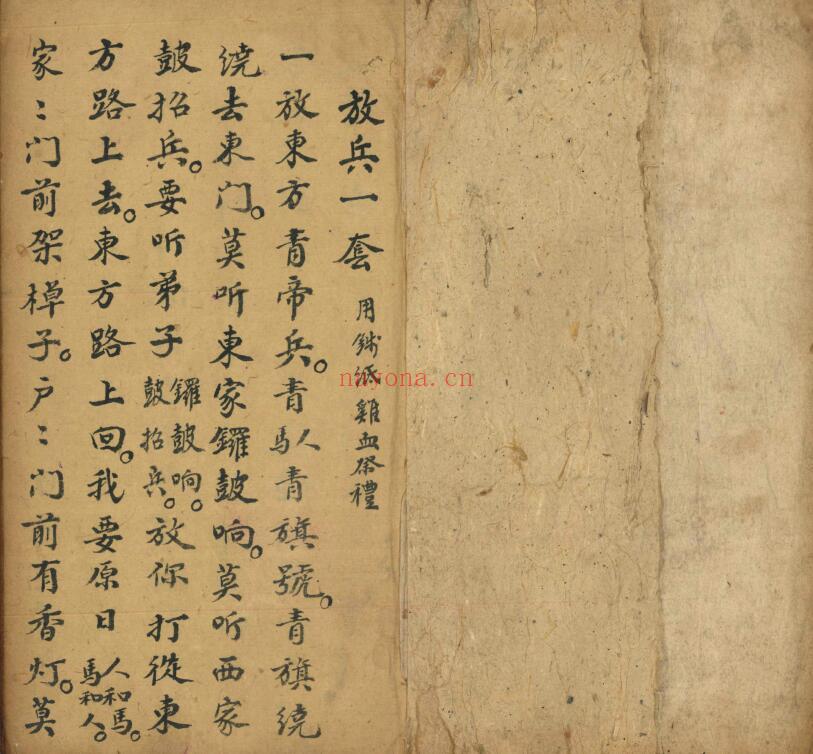 放兵一套 用錢紙雞血祭禮
一放東方青帝兵。青人馬青旗號。青旗繞
繞去東門。莫听東家鑼鼓响。莫听西家
鼓招兵。要听弟子鑼鼓响。鼓招兵。放你打從東
方路上去。東方路上回。我要原日人和馬。馬和人。
家〻门前架槔子。户〻门前有香灯。莫
nayona.cn